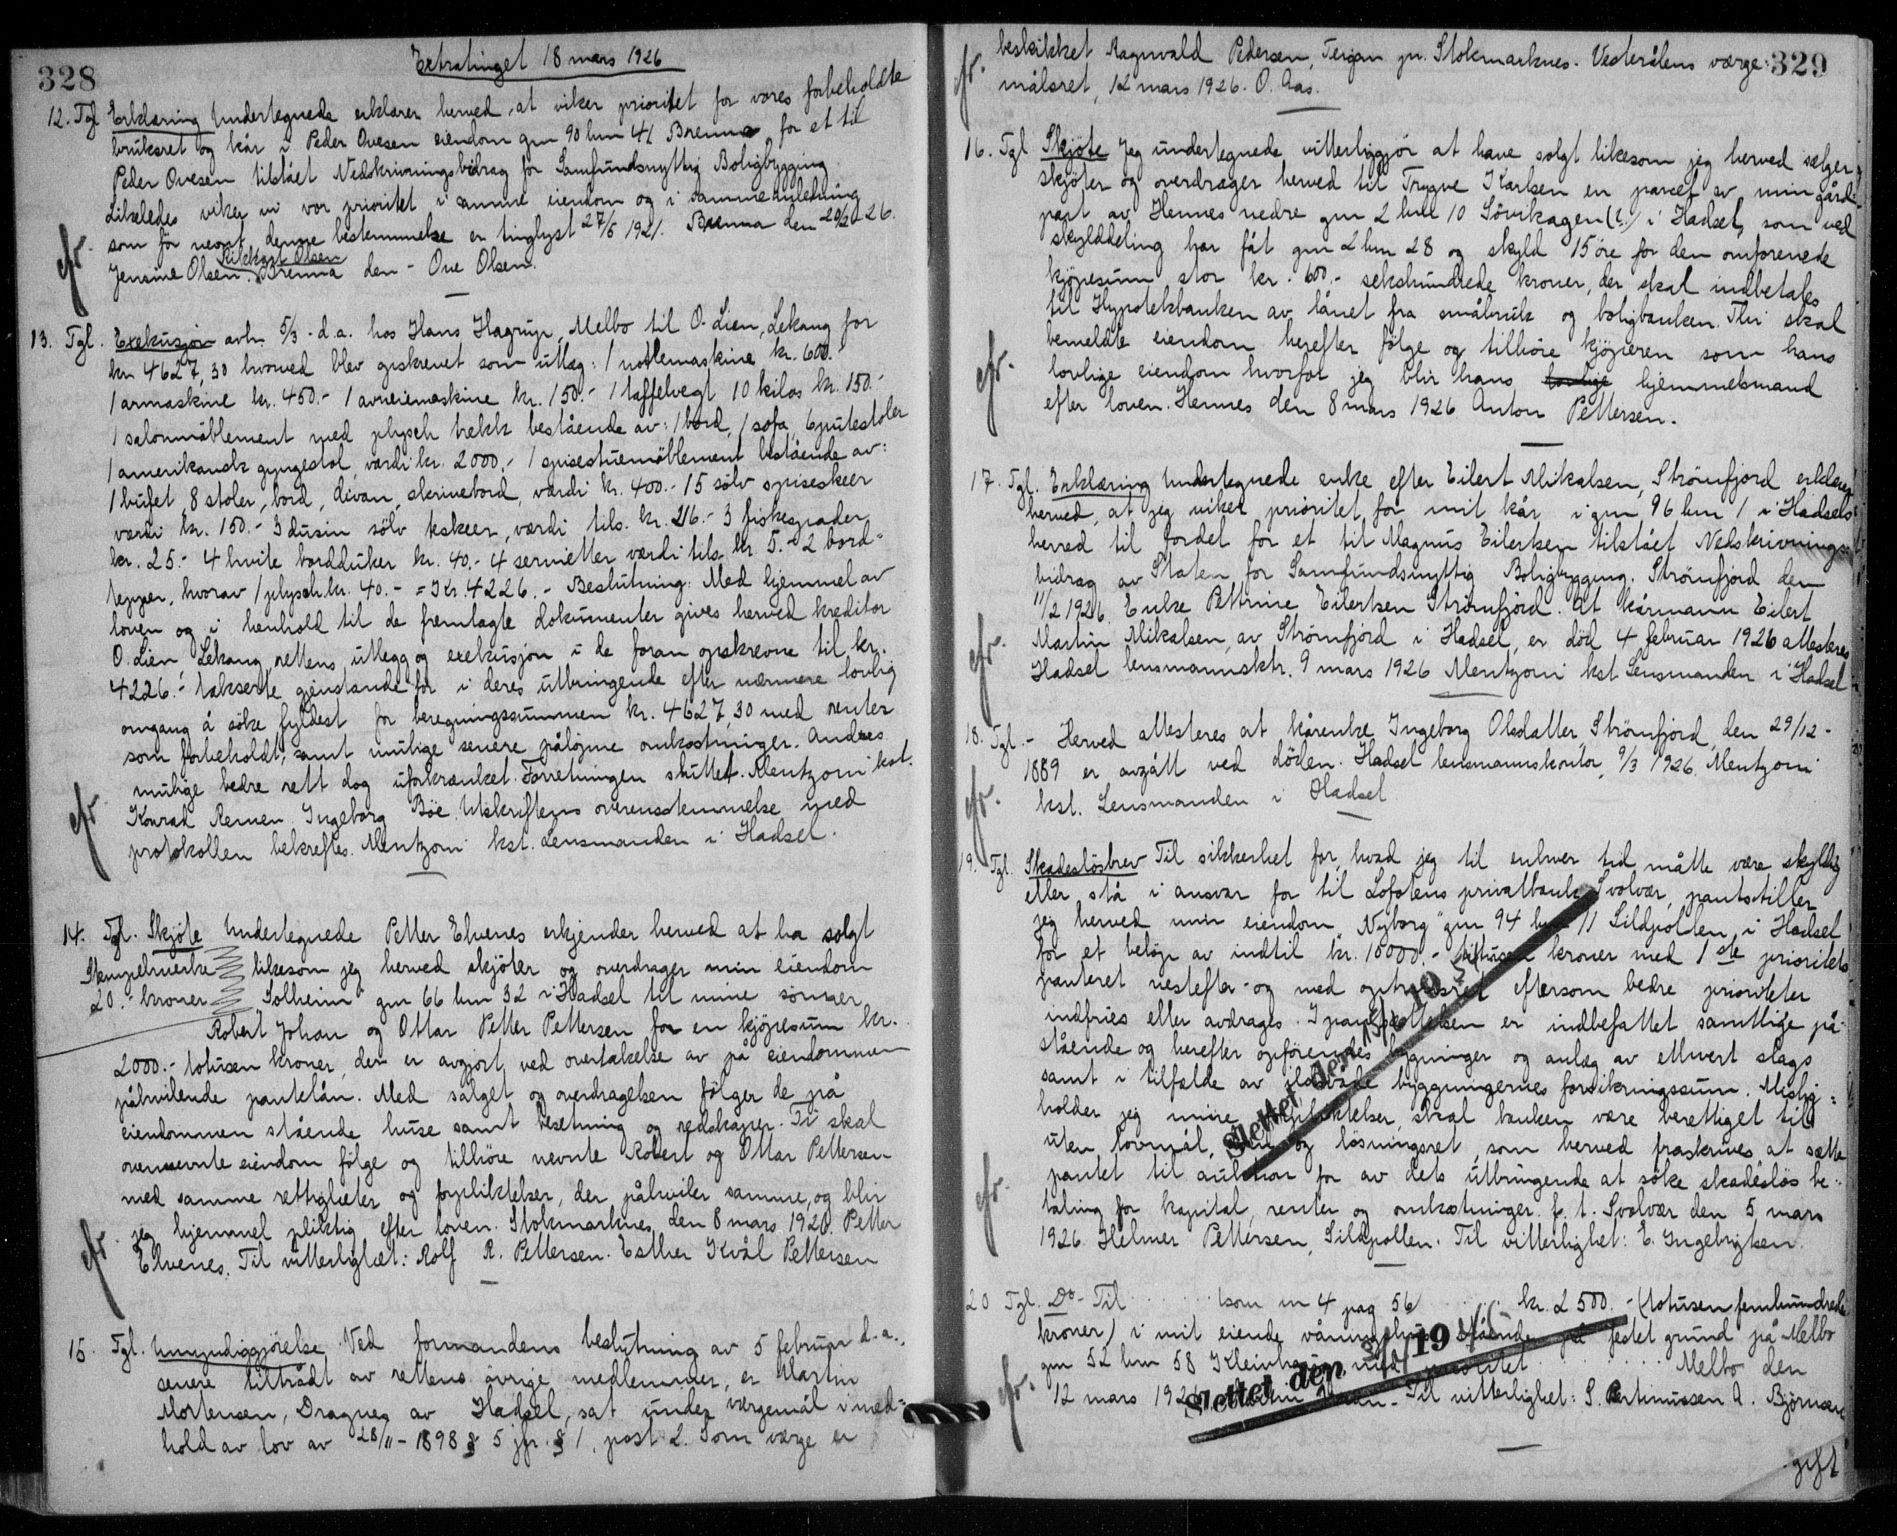 328
Extratinget 18 mars 1926
12. Tgl Erklæring Undertegnede erklærer herved, at viker prioritet for vores forbeholdte
bruksret og kår i Peder Ovesen eiendom gnr 90 bnr 41 Brenna for et til
Peder Ovesen tilstået Nedskrivningsbidrag for Samfundsnyttig Boligbygging.
Likeledes viker vi vor prioritet i samme eiendom og i samme anledning
som før nevnt, denne bestemmelse er tinglyst 27/5 1921. Brenna den 20/2 26.
Jensine Olsen. Olsen Brenna den - Ove Olsen.
cfr.
13. Tgl. Exekusjon avh. 5/3 - d.a. hos Hans Hagrup, Melbo til O. Lien, Lekang for
kr 4627,30 hvorved blev opskrevet som utlæg: 1 kr. 600.-
1 kr. 450.- 1 kr. 150.- 1 taffelvegt 10 kilos kr. 150.-
1 salonmöblement med plysch trekk bestående av: 1 bord, 1 sofa, 6 putestoler
1 amerikansk gyngestol, værdi kr. 2000.- 1 spisestuemöblement bestående av:
1 bufet, 8 stoler, bord, divan, skrivebord, værdi kr. 400.- 15 sölv spiseskeer
værdi kr. 150.- 3 dusin sölv tskeer, værdi tils. kr. 216.- 3 fiskespader
kr. 25.- 4 hvite bordduker kr. 40.- 4 servietter værdi tils. kr. 5.- 2 bord=
tepper, hvorav 1 plysch. kr. 40.- = Kr. 4226.- Beslutning: Med hjemmel av
loven og i henhold til de fremlagte dokumenter gives herved kreditor
O. Lien, Lekang rettens utlegg og exekusjon i de foran opskrevne til kr.
4226.- takserte gjenstande for i deres utbringende efter nærmere lovlig
omgang å söke fyldest for beregningssummen kr. 4627 30 med renter
som forbeholdt, samt mulige senere påløpne omkostninger. Andres
mulige bedre rett dog uforkrænket. Forretningen sluttet. Mentzoni kst.
Konrad Reinen Ingeborg Böe. Utskriftens overensstemmelse med
protokollen bekreftes. Mentzoni kst. Lensmanden i Hadsel.
cfr
14. Tgl. Skjöte Undertegnede Petter Elvenes erkjender herved at ha solgt
Stempelmerke likesom jeg herved skjöter og overdrager min eiendom
20.- kroner "Solheim" gnr 66 bnr 32 i Hadsel til mine sönner
Robert Johan og Ottar Petter Pettersen for en kjöpesum kr.
2000.- totusen kroner, der er avgjort ved overtakelse av på eiendommen
påhvilende pantelån. Med salget og overdragelsen følger de på
eiendommen stående huse samt besetning og redskaper. Ti skal
ovennevnte eiendom følge og tilhöre nevnte Robert og Ottar Pettersen
med samme rettigheter og forpliktelser, der påhviler samme, og blir
jeg hjemmel pliktig efter loven. Stokmarknes, den 8 mars 1926. Petter
Elvenes. Til vitterlighet: Rolf R. Pettersen. Esther Kvål Pettersen
cfr.
15. Tgl. Umyndiggjørelse Ved formandens beslutning av 5 februar d.a.,
senere tiltrådt av rettens övrige medlemmer, er Martin
Mortensen, Dragnes av Hadsel, sat under værgemål i med-
hold av lov av 28/11 - 1898 § 5 jfr. § 1, post 2. Som værge er
329
beskikket Ragnvald Pedersen, pr. Stokmarknes. Vesterålens værge=
målsret, 12 mars 1926. O. Aas.
cfr.
16. Tgl Skjöte Jeg undertegnede vitterliggjör at have solgt likesom jeg herved sælger,
skjöter og overdrager herved til Trygve Karlsen en parcel av min gård-
part av Hennes nedre gnr 2 bnr 10 Sövikagen (L.) i Hadsel, som ved
skylddeling har fåt gnr 2 bnr 28 og skyld 15 öre for den omforenede
kjöpesum stor kr. 600.- sekshundrede kroner, der skal indbetales
til Hypotekbanken av lånet fra småbruk og boligbanken. Thi skal
bemeldte eiendom herefter fölge og tilhöre kjöperen som hans
lovlige eiendom hvorfor jeg blir hans lovlige hjemmelsmand
efter loven. Hennes den 8 mars 1926 Anton Pettersen.
cfr.
17. Tgl. Erklæring Undertegnede enke efter Eilert Mikalsen, Strömfjord erklærer
herved, at jeg viker prioritet for mit kår i gnr 96 bnr 1 i Hadsels
herred til fordel for et til Magnus Eilertsen tilstået Nedskrivnings
bidrag av Staten for Samfundsnyttig Boligbygging. Strömfjord den
11/2 1926. Enke Pettrine Eilertsen Strömfjord. At kårmann Eilert
Martin Mikalsen, av Strömfjord i Hadsel, er död 4 februar 1926 attesteres
Hadsel lensmannsktr. 9 mars 1926 Mentzoni kst Lensmanden i Hadsel
cfr.
18. Tgl. - Herved attesteres at kårenke Ingeborg Olsdatter, Strömfjord, den 29/12 -
1889 er avgått ved döden. Hadsel lensmannskontor, 9/3 1926. Mentzoni
kst. Lensmanden i Hadsel
cfr.
19. Tgl. Skadeslösbrev Til sikkerhet for, hvad jeg til enhver tid måtte være skyldig
eller stå i ansvar for til Lofotens privatbank, Svolvær, pantsetiller
jeg herved min eiendom "Nyborg" gnr 94 bnr 11 Sildpollen i Hadsel
for et belöp av indtil kr. 10000.- titusen kroner med 1ste prioritets
panteret nestefter - og med optrinsret eftersom bedre prioriteter
indfries eller avdrages. I pantsettelsen er indbefattet samtlige på=
stående og herefter opförendes bygninger og anlæg av ethvert slags
samt i tilfælde av ildsvåde byggningernes forsikringssum. Mislig=
holder jeg mine forpliktelser, skal banken være berettiget til
uten lovmål, og lösningsret, som herved fraskrives, at sætte
pantet til auktion for av dets utbringende at söke skadeslös be=
taling for kapital, renter og omkostninger. f. t. Svolvær den 5 mars
1926. Helmer Pettersen, Sildpollen. Til vitterlighet: E. Ingebrigtsen.
Slettet den 19
cfr.
20 Tgl. Do - Til ...... (som nr 4 pag 56 ...... kr. 2500.- (totusen femhundrede
kroner) i mit eiende våningshus stående på festet grund på Melbo
gnr 52 bnr 58 prioritet ...... Melbo den
12 mars 192 Til vitterlighet: S. A. Björnsen
Slettet den 19
cfr.
gift